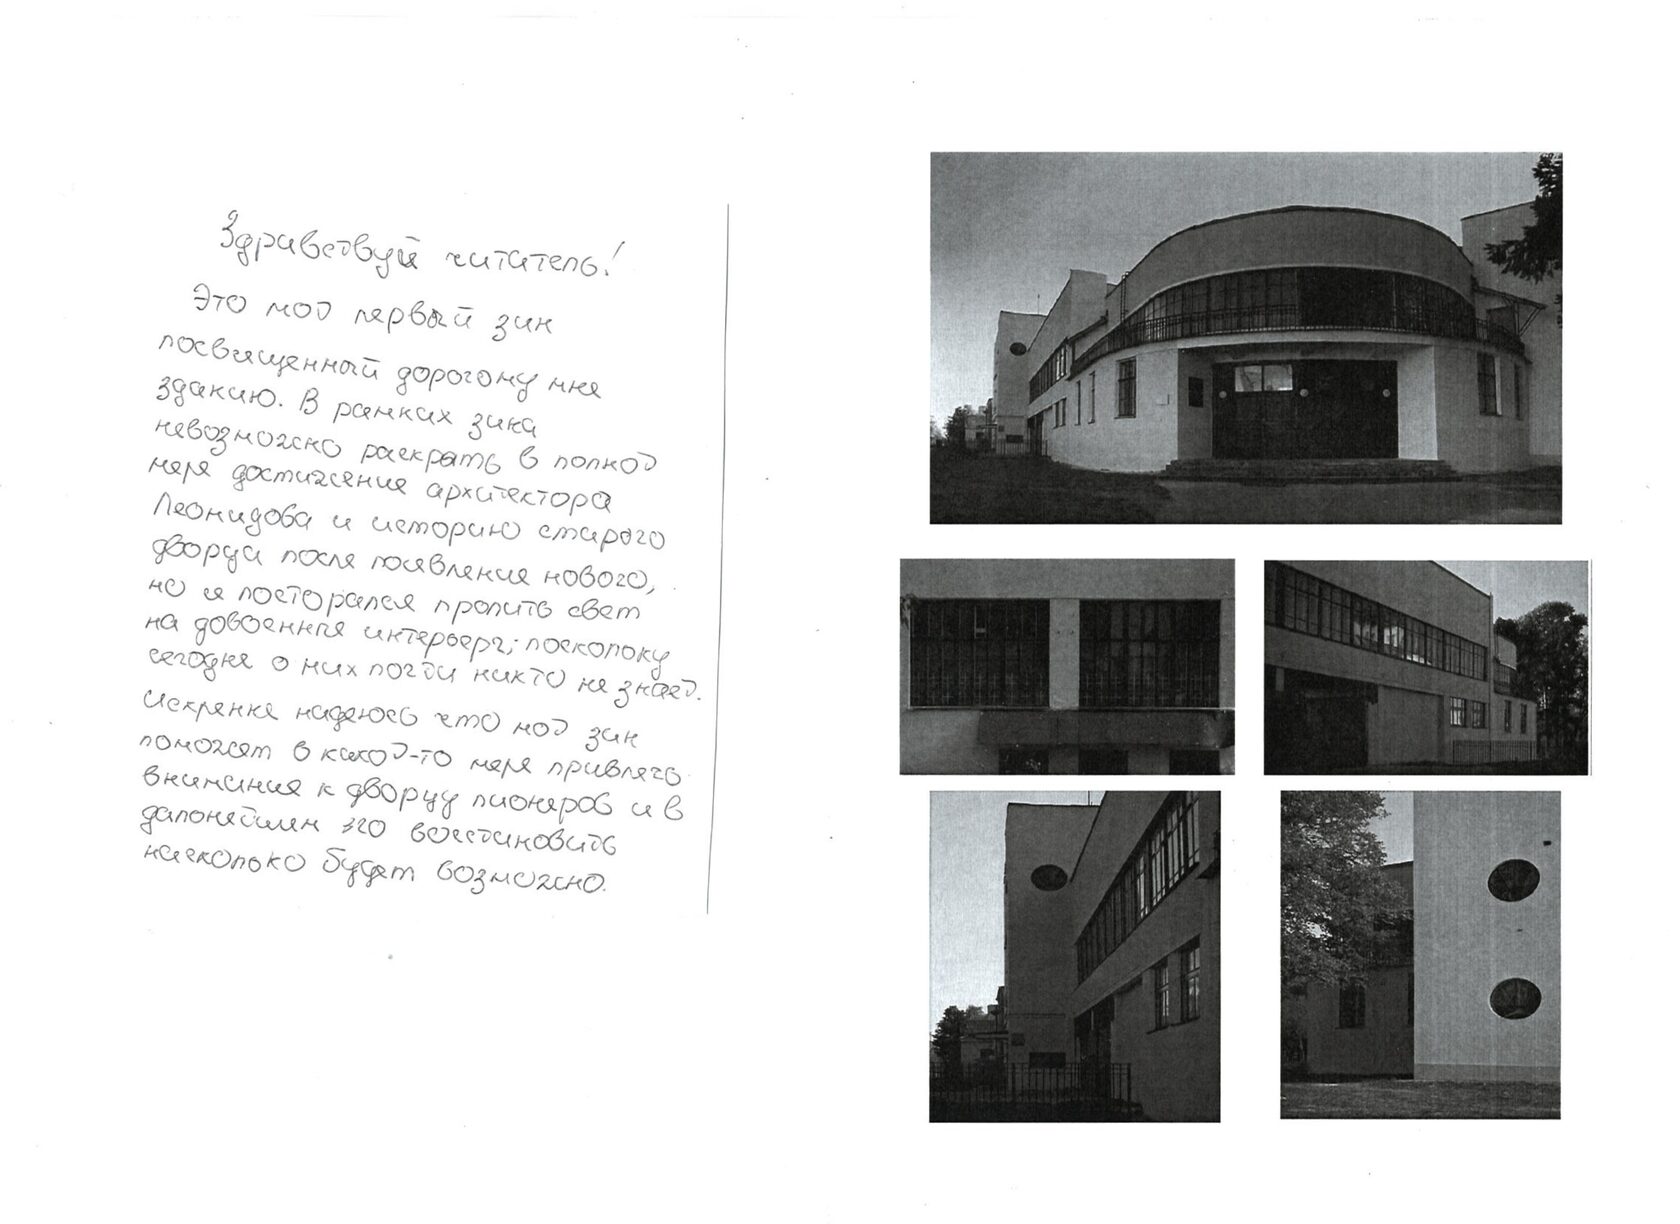 Здравствуй читатель!
Это мой первый зин
посвященный дорогому мне
зданию. В рамках зина
невозможно раскрать в полной
мере достижение архитектора
Леонидова и историю старого
дворца после появление нового,
но я посторался пролить свет
на довоенные интерьеры, поскольку
сегодня о них почти никто не знает.
Искренне надеюсь что мой зин
поможет в какой-то мере привлечь
внимание к дворцу пионеров и в
дальнейшем его восстановить
насколько будет возможно.